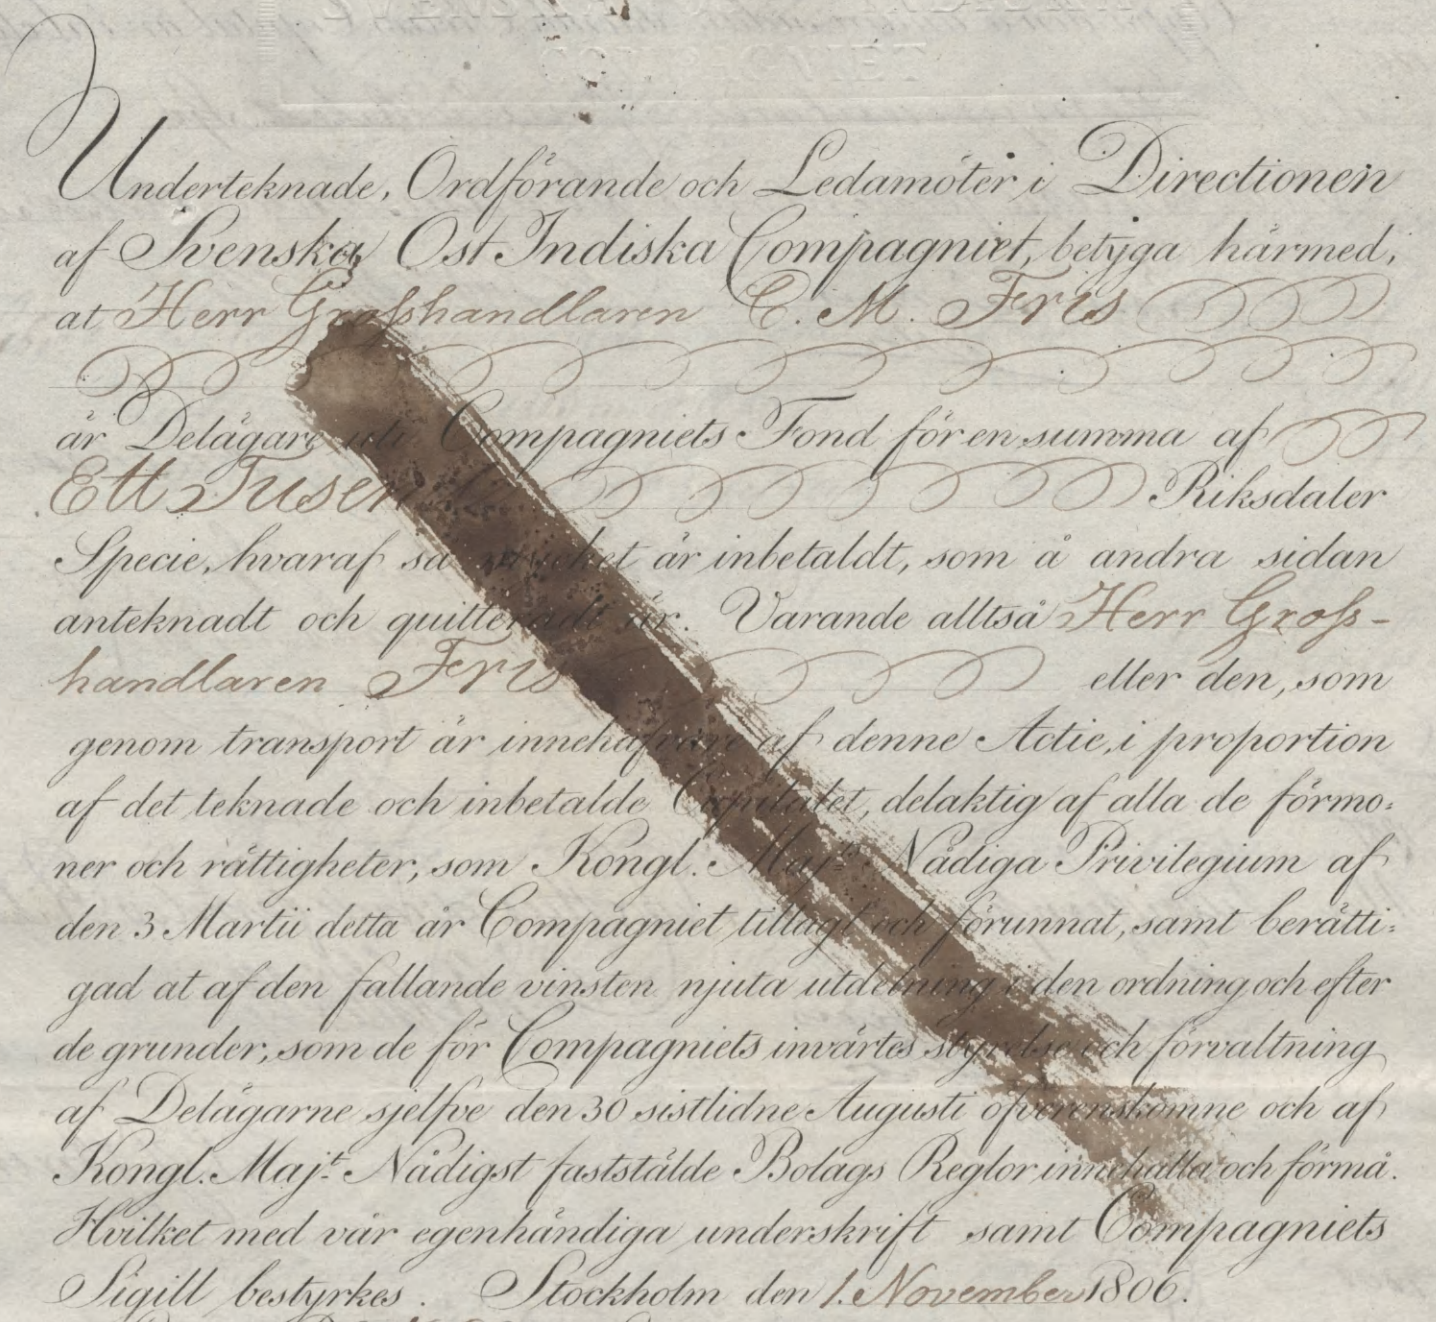 Underteknade, Ordförande och Ledamöter i Directionen
af Svenska Ost Indiska Compagniet, betyga härmed,
at Herr Grosshandlaren C. M. Fris
är Delägare uti Compagniets Fond för en summa af
Ett Tusen Riksdaler
Specie, hvaraf så mycket är inbetaldt, som å andra sidan
anteknadt och quitteradt är. Varande alltså Herr Gross-
handlaren Fris eller den, som
genom transport är innehafvare af denne Actie, i proportion
af det teknade och inbetalde Capitalet, delaktig af alla de förmo:
ner och rättigheter, som Kongl. Maj:ts Nådiga Privilegium af
den 3 Martii detta år Compagniet tillagt och förunnat, samt berätti:
gad at af den fallande vinsten njuta utdelning i den ordning och efter
de grunder, som de för Compagniets invärtes styrelse och förvaltning
af Delägarne sjelfve den 30 sistlidne Augusti öfverenskomne och af
Kongl. Maj:t Nådigst faststälde Bolags Reglor innehålla och förmå.
Hvilket med vår egenhändiga underskrift samt Compagniets
Sigill bestyrkes. Stockholm den 1. November 1806.